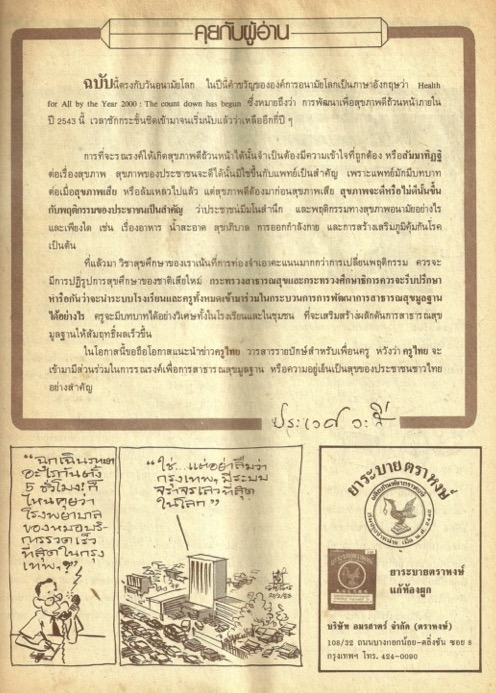 คุยกับผู้อ่าน
ฉบับนี้ตรงกับวันอนามัยโลก ในปีนี้คำขวัญขององค์การอนามัยโลกเป็นภาษาอังกฤษว่า Health
for All by the Year 2000 : The count down has begun ซึ่งหมายถึงว่า การพัฒนาเพื่อสุขภาพดีถ้วนหน้าภายใน
ปี 2543 นี้ เวลาชักกระชั้นชิดเข้ามาจนเริ่มนับแล้วว่าเหลืออีกกี่ปี ๆ
การที่จะรณรงค์ให้เกิดสุขภาพดีถ้วนหน้าได้นั้นจำเป็นต้องมีความเข้าใจที่ถูกต้อง หรือสัมมาทิฏฐิ
ต่อเรื่องสุขภาพ สุขภาพของประชาชนจะดีได้นั้นมิใช่ขึ้นกับแพทย์เป็นสำคัญ เพราะแพทย์มักมีบทบาท
ต่อเมื่อสุขภาพเสีย หรือล้มเหลวไปแล้ว แต่สุขภาพดีต้องมาก่อนสุขภาพเสีย สุขภาพจะดีหรือไม่ดีนั้นขึ้น
กับพฤติกรรมของประชาชนเป็นสำคัญ ว่าประชาชนมีมโนสำนึก และพฤติกรรมทางสุขภาพอนามัยอย่างไร
และเพียงใด เช่น เรื่องอาหาร น้ำสะอาด สุขาภิบาล การออกกำลังกาย และการสร้างเสริมภูมิคุ้มกันโรค
เป็นต้น
ที่แล้วมา วิชาสุขศึกษาของเราเน้นที่การท่องจำเอาคะแนนมากกว่าการเปลี่ยนพฤติกรรม ควรจะ
มีการปฏิรูปการสุขศึกษาของชาติเสียใหม่ กระทรวงสาธารณสุขและกระทรวงศึกษาธิการควรจะรีบปรึกษา
หารือกันว่าจะนำระบบโรงเรียนและครูทั้งหมดเข้ามาร่วมในกระบวนการการพัฒนาการสาธารณสุขมูลฐาน
ได้อย่างไร ครูจะมีบทบาทได้อย่างวิเศษทั้งในโรงเรียนและในชุมชน ที่จะเสริมสร้างผลักดันการสาธารณสุข
มูลฐานให้สัมฤทธิ์ผลเร็วขึ้น
ในโอกาสนี้ขอถือโอกาสแนะนำข่าวครูไทย วารสารรายปักษ์สำหรับเพื่อนครู หวังว่า ครูไทย จะ
เข้ามามีส่วนร่วมในการรณรงค์เพื่อการสาธารณสุขมูลฐาน หรือความอยู่เย็นเป็นสุขของประชาชนชาวไทย
อย่างสำคัญ
ประเวศ วะสี
"ฉุกเฉินภาษา
อะไรกันตั้ง
5 ชั่วโมง! ก็
ไหนคุยว่า
โรงพยาบาล
ของหมอบริ-
การรวดเร็ว
ที่สุดในกรุง
เทพฯ?"
"ใช่...แต่อย่าลืมว่า
กรุงเทพฯ มีระบบ
จราจรเลวที่สุด
ในโลก"
ยาระบายตราหงษ์
ยาระบายตราหงษ์
แก้ท้องผูก
บริษัท อมรสาตร์ จำกัด (ตราหงษ์)
108/32 ถนนบางกอกน้อย-ตลิ่งชัน ซอย 8
กรุงเทพฯ โทร. 424-0090